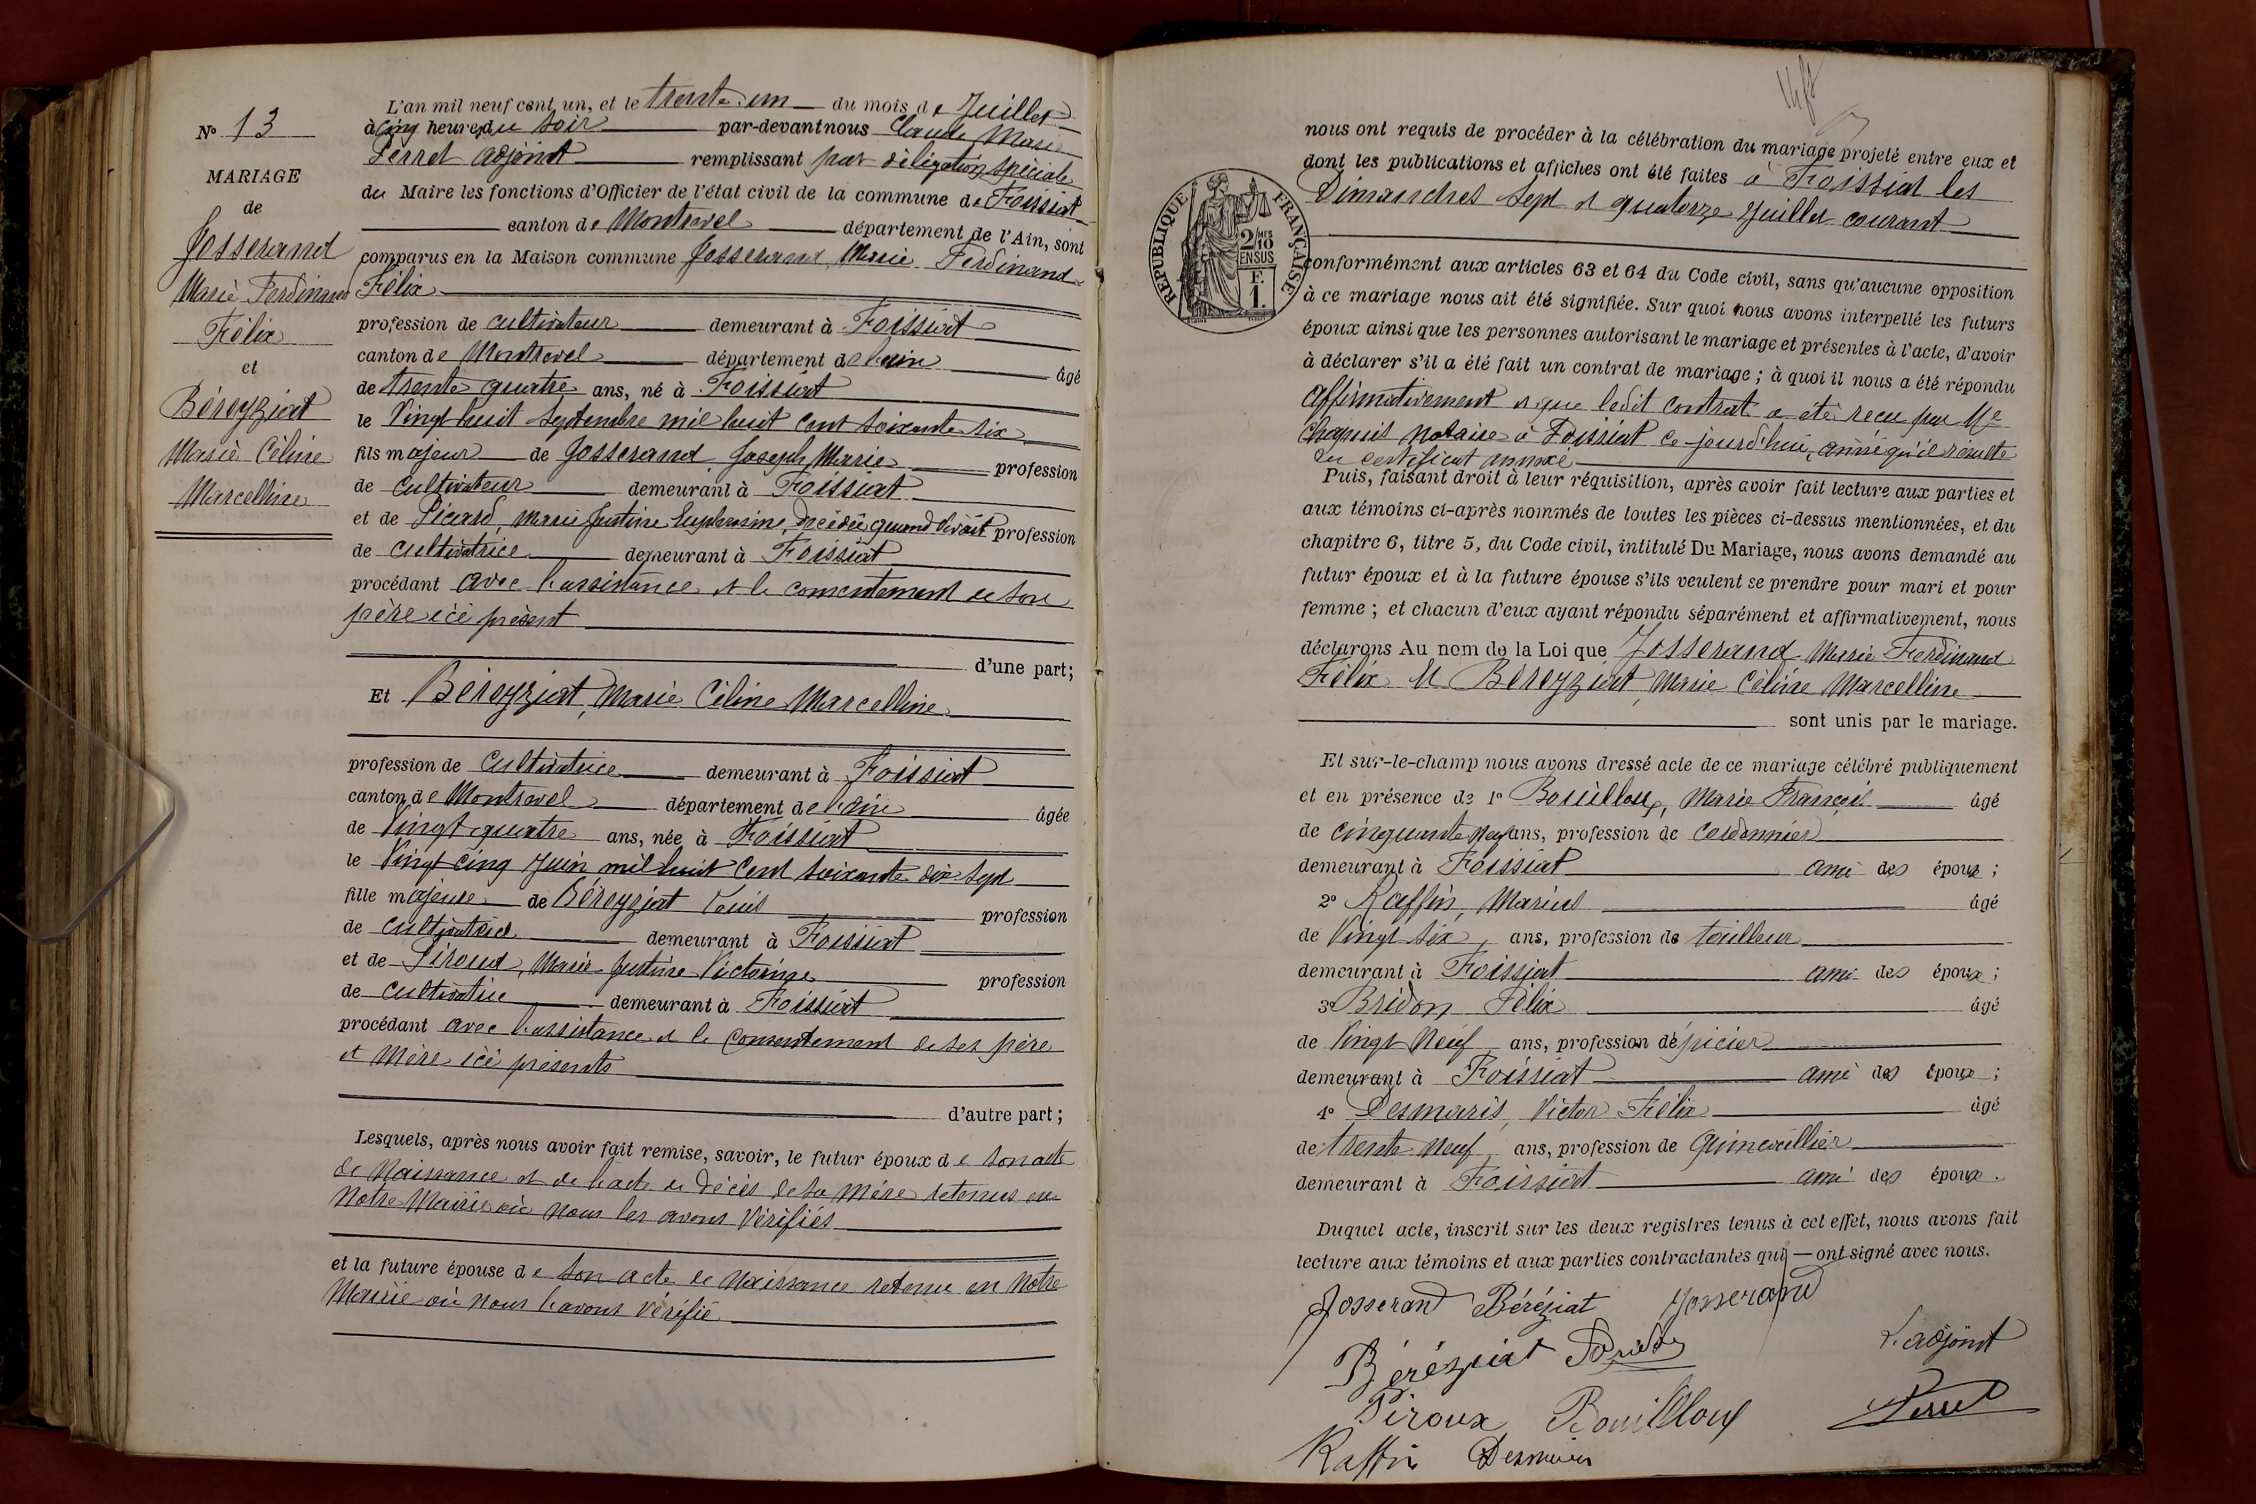 N° 13
MARIAGE
de
Josserand
Marie Ferdinand
Félix
et
Béreyziat
Marie Céline
Marcelline
L'an mil neuf cent un, et le trente un du mois de Juillet
à cinq heures du soir par-devant nous Claude Marie
Perret adjoint remplissant par délégation spéciale
du Maire les fonctions d'Officier de l'état civil de la commune de Foissiat
canton de Montrevel département de l'Ain, sont
comparus en la Maison commune Josserand, Marie Ferdinand
Félix
profession de cultivateur demeurant à Foissiat
canton de Montrevel département de l'ain âgé
de trente quatre ans, né à Foissiat
le Vingt huit Septembre mil huit cent soixante six
fils majeur de Josserand, Joseph Marie profession
de Cultivateur demeurant à Foissiat
et de Picard, Marie Justine Euphrosine, décédée quand vivait profession
de cultivatrice demeurant à Foissiat
procédant avec l'assistance et le consentement de son
père ici présent
d'une part;
Et Béreyziat, Marie Céline Marcelline
profession de Cultivatrice demeurant à Foissiat
canton de Montrevel département de l'ain âgée
de Vingt quatre ans, née à Foissiat
le Vingt cinq Juin mil huit Cent soixante dix sept
fille majeure de Béreyziat Louis profession
de demeurant à Foissiat
et de Piroud, Marie Justine Victorine profession
de cultivatrice demeurant à Foissiat
procédant avec l'assistance et le Consentement de ses père
et Mère ici présents
d'autre part;
Lesquels, après nous avoir fait remise, savoir, le futur époux de son acte
de Naissance et de l'acte de décès de sa Mère retenus en
Notre Mairie où nous les avons Vérifiés
et la future épouse de son acte de Naissance retenu en Notre
Mairie où nous l'avons Vérifié
nous ont requis de procéder à la célébration du mariage projeté entre eux et
dont les publications et affiches ont été faites à Foissiat les
Dimanches Sept et quatorze Juillet courant
RÉPUBLIQUE FRANÇAISE
2/10 MES
EN SUS
F.
1.
conformément aux articles 63 et 64 du Code civil, sans qu'aucune opposition
à ce mariage nous ait été signifiée. Sur quoi nous avons interpellé les futurs
époux ainsi que les personnes autorisant le mariage et présentes à l'acte, d'avoir
à déclarer s'il a été fait un contrat de mariage; à quoi il nous a été répondu
affirmativement et que ledit contrat a été recu par Me
Chapuis Notaire à Foissiat ce jourd'hui, ainsi qu'il résulte
du certificat annexé
Puis, faisant droit à leur réquisition, après avoir fait lecture aux parties et
aux témoins ci-après nommés de toutes les pièces ci-dessus mentionnées, et du
chapitre 6, titre 5, du Code civil, intitulé Du Mariage, nous avons demandé au
futur époux et à la future épouse s'ils veulent se prendre pour mari et pour
femme; et chacun d'eux ayant répondu séparément et affirmativement, nous
déclarons Au nom de la Loi que Josserand Marie Ferdinand
Félix et Béreyziat, Marie Céline Marcelline
sont unis par le mariage.
Et sur-le-champ nous avons dressé acte de ce mariage célébré publiquement
et en présence de 1° Bouilloux, Marie François âgé
de Cinquante Neuf ans, profession de cordonnier
demeurant à Foissiat ami des époux;
2° Raffin, Marius âgé
de Vingt six, ans, profession de tailleur
demeurant à Foissiat ami des époux;
3° Bridon Félix âgé
de Vingt Neuf ans, profession d'épicier
demeurant à Foissiat ami des époux;
4° Desmaris, Victor Félix âgé
de trente neuf, ans, profession de quincaillier
demeurant à Foissiat ami des époux.
Duquel acte, inscrit sur les deux registres tenus à cet effet, nous avons fait
lecture aux témoins et aux parties contractantes qui ont signé avec nous.
Josserand Béréziat Josserand
L'adjoint
Béréziat
Piroux Bouilloux Perret
Raffin Desmaris